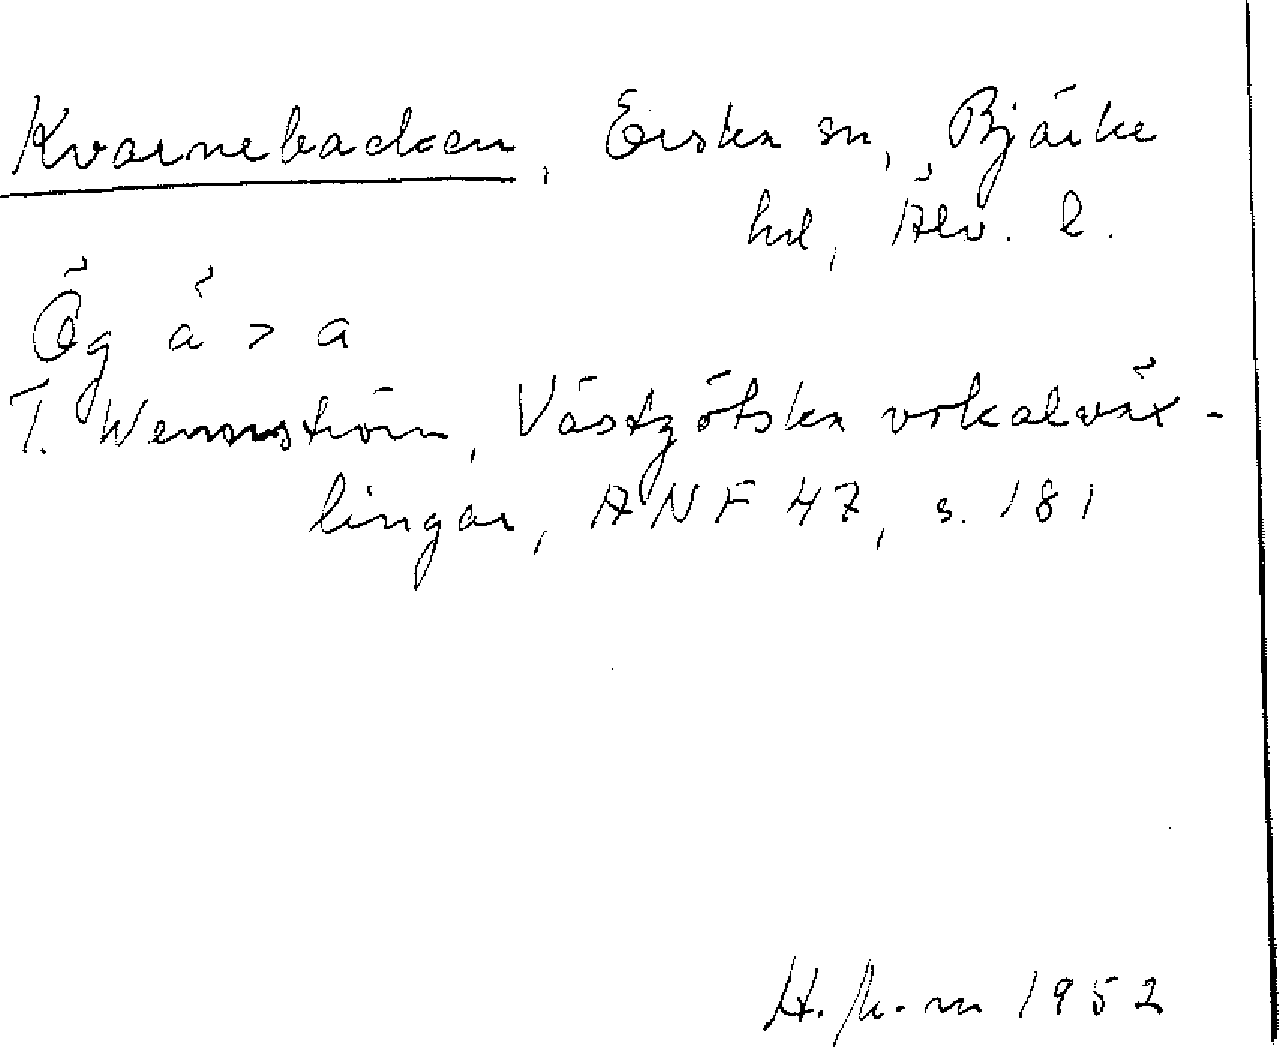 Kvarnebacken, Erska sn, Bjärke
hd, Älv. l.
Ög ä > a
T. Wennström, Västgötska vokalväx-
lingar, ANF 47, s. 181
1952